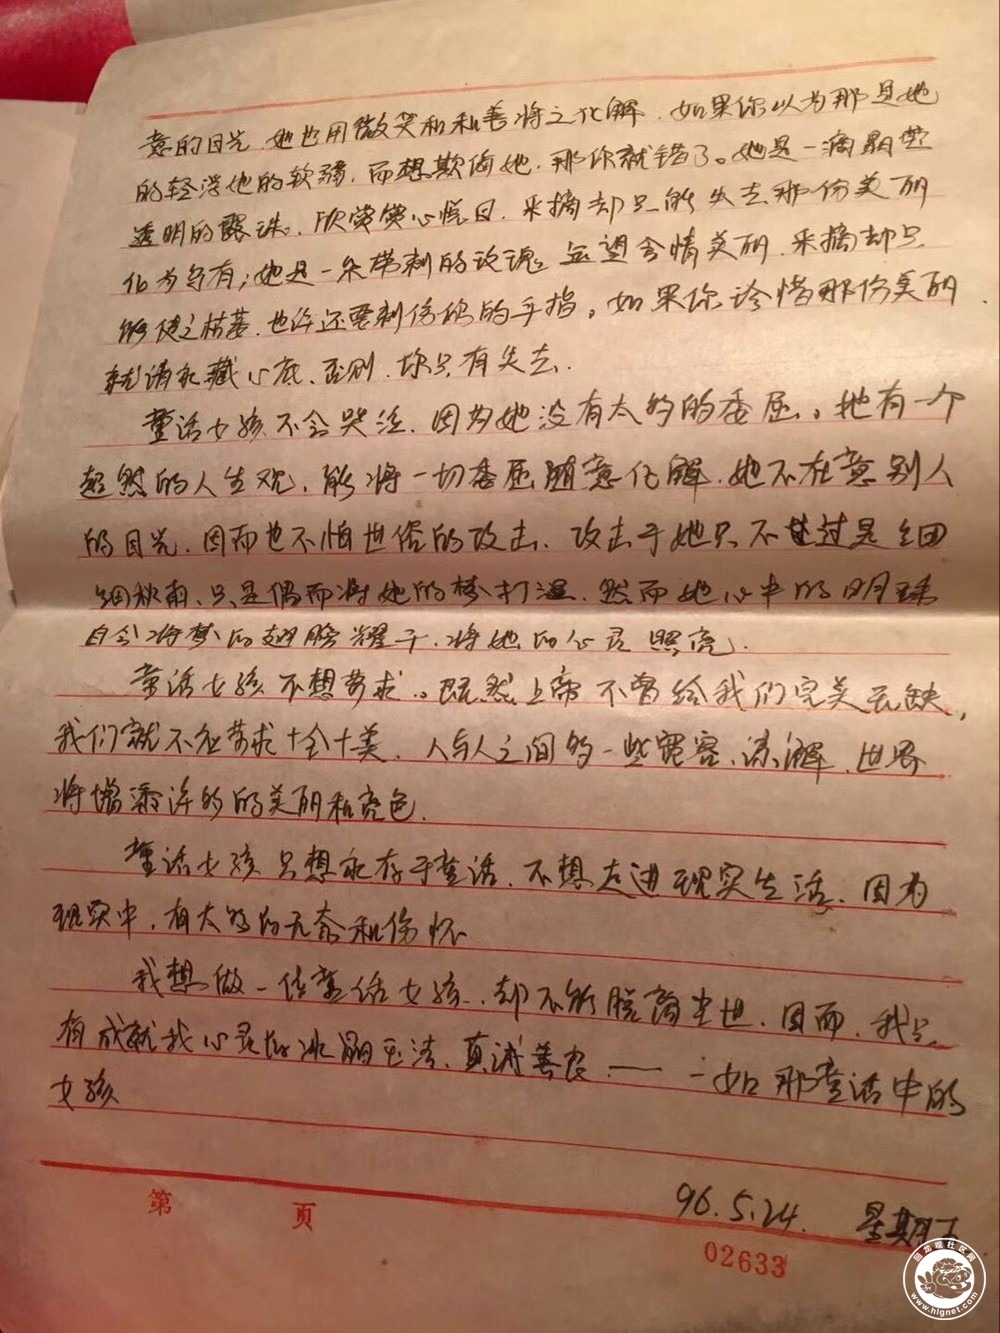 意的目光,她也用微笑和和善将之化解。如果你以为那是她
的轻浮她的软弱,而想欺侮她,那你就错了。她是一滴晶莹
透明的露珠。欣赏赏心悦目,采摘却只能失去那份美丽
化为乌有;她是一朵带刺的玫瑰。远望含情美丽,采摘却只
能使之枯萎,也许还要刺伤你的手指。如果你珍惜那份美丽,
就请永藏心底、否则,你只有失去.
童话女孩不会哭泣,因为她没有太多的委屈。她有一个
超然的人生观,能将一切委屈随意化解,她不在意别人
的目光,因而也不怕世俗的攻击。攻击于她只不过是细
细秋雨、只是偶而将她的梦打湿.然而她心中的明珠
自会将梦的翅膀耀干.将她的心灵照亮.
童话女孩不想苛求。既然上帝不曾给我们完美无缺,
我们就不应苛求十全十美.人与人之间多一些宽容、谅解,世界
将增添许多的美丽和亮色.
童话女孩只想永存于童话,不想走进现实生活.因为
现实中,有太多的无奈和伤怀
我想做一位童话女孩,却不能脱离尘世.因而,我只
有成就我心灵的冰晶玉洁、真诚善良——一如那童话中的
女孩
96.5.24. 星期五
第 页
02633
回龙观社区网
www.hlgnet.com